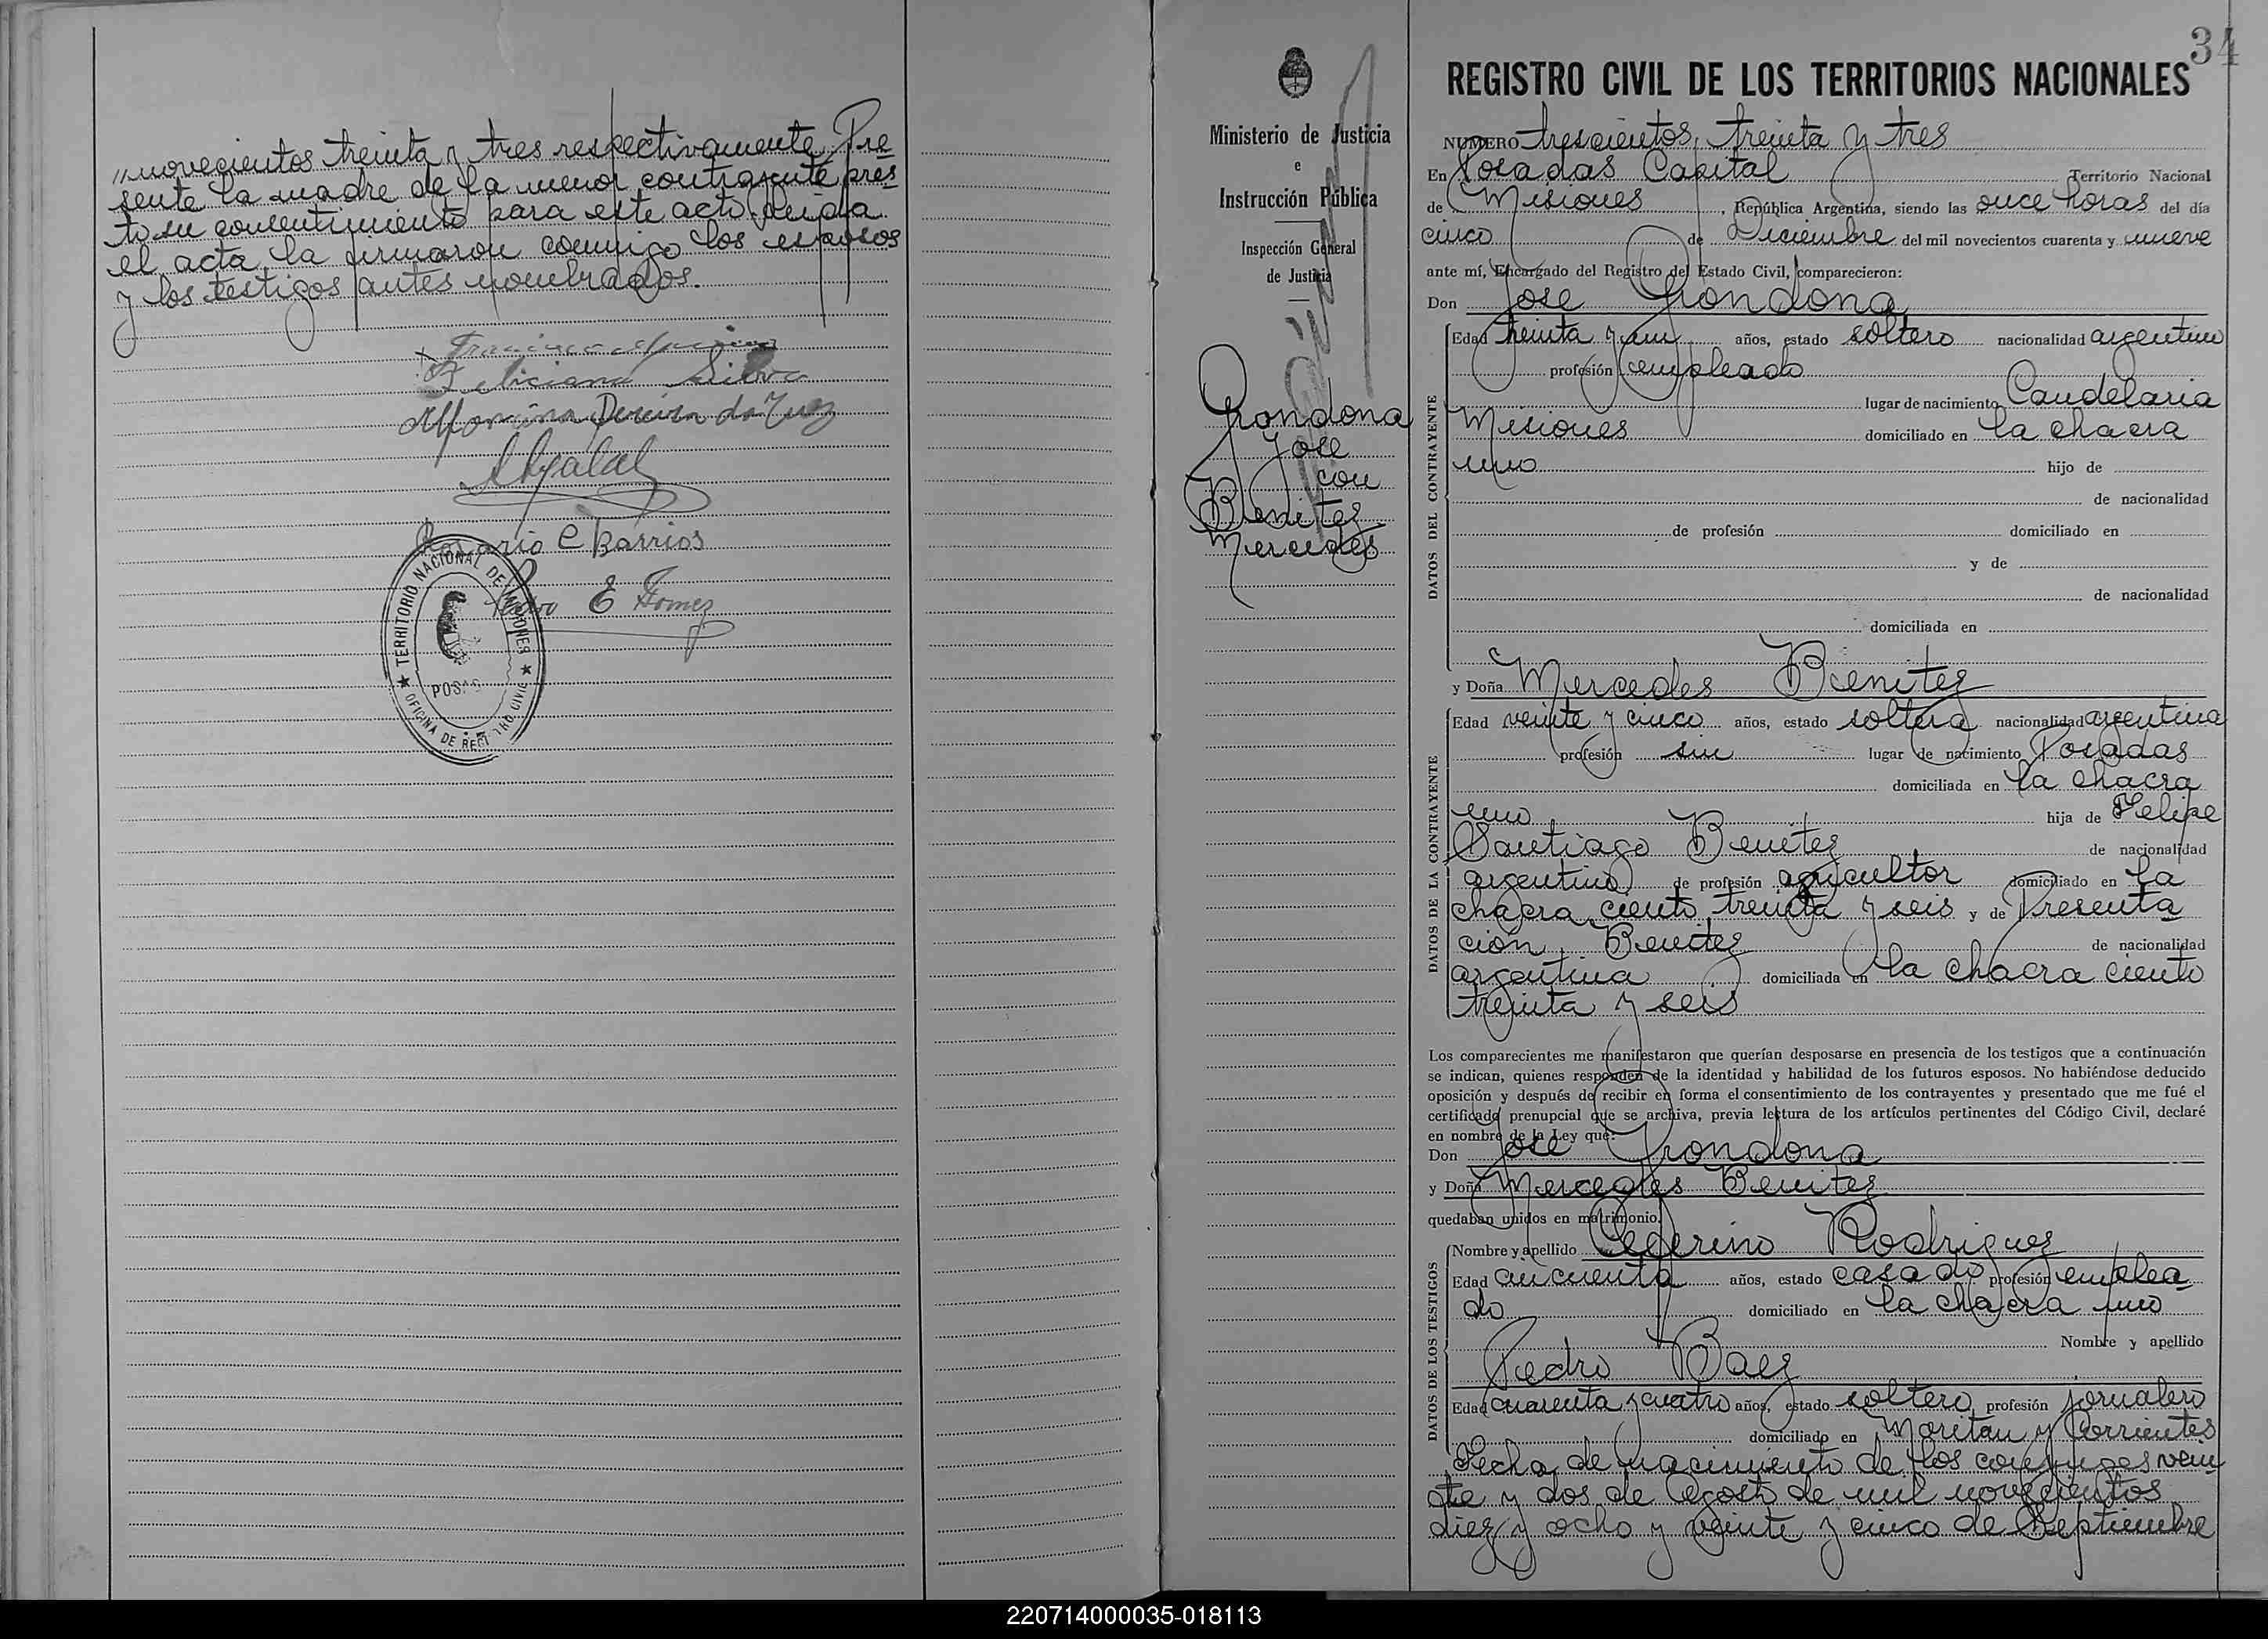 "novecientos treinta y tres respectivamente. Pre
sente la madre de la menor contrayente pres
to su consentimiento para este acto. Leida
el acta la firmaron conmigo los esposos
y los testigos antes nombrados.
Feliciana Silva
Pereira da Luz
Rosario C Barrios
Pedro E Gomez
TERRITORIO NACIONAL DE MISIONES
POSAS
OFICINA DE REGISTRO CIVIL
Ministerio de Justicia
e
Instrucción Pública
Inspección General
de Justicia
Grondona
Jose
con
Benitez
Mercedes
34
REGISTRO CIVIL DE LOS TERRITORIOS NACIONALES
NUMERO trescientos, treinta y tres
En Posadas Capital Territorio Nacional
de Misiones, República Argentina, siendo las once horas del día
cinco de Diciembre del mil novecientos cuarenta y nueve
ante mí, Encargado del Registro del Estado Civil, comparecieron:
Don Jose Grondona
DATOS DEL CONTRAYENTE
Edad treinta y un años, estado soltero nacionalidad argentino
profesión empleado
lugar de nacimiento Candelaria
Misiones domiciliado en la chacra
uno hijo de
de nacionalidad
de profesión domiciliado en
y de
de nacionalidad
domiciliada en
y Doña Mercedes Benitez
DATOS DE LA CONTRAYENTE
Edad veinte y cinco años, estado soltera nacionalidad argentina
profesión sin lugar de nacimiento Posadas
domiciliada en la chacra
uno hija de Felipe
Santiago Benitez de nacionalidad
argentino de profesión agricultor domiciliado en la
chacra ciento treinta y seis y de Presenta
ción Benitez de nacionalidad
argentina domiciliada en la chacra ciento
treinta y seis
Los comparecientes me manifestaron que querían desposarse en presencia de los testigos que a continuación
se indican, quienes responden de la identidad y habilidad de los futuros esposos. No habiéndose deducido
oposición y después de recibir en forma el consentimiento de los contrayentes y presentado que me fué el
certificado prenupcial que se archiva, previa lectura de los artículos pertinentes del Código Civil, declaré
en nombre de la Ley que:
Don Jose Grondona
y Doña Mercedes Benitez
quedaban unidos en matrimonio.
DATOS DE LOS TESTIGOS
Nombre y apellido Ceferino Rodriguez
Edad cincuenta años, estado casado profesión emplea
do domiciliado en la chacra uno
Nombre y apellido
Pedro Baez
Edad cuarenta y cuatro años, estado soltero profesión jornalero
domiciliado en Moritan y Corrientes
Fecha de nacimiento de los conyuges vein
te y dos de Agosto de mil novecientos
diez y ocho y veinte y cinco de Septiembre
220714000035-018113